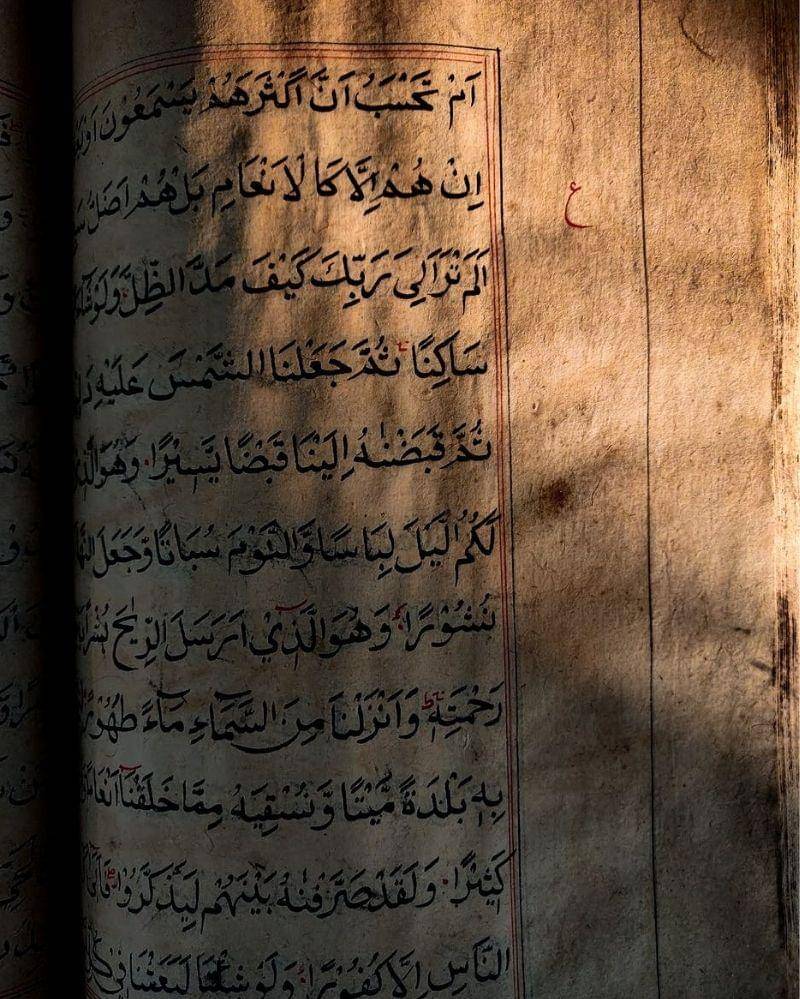 اَمْ تَحْسَبُ اَنَّ اَكْثَرَهُمْ يَسْمَعُوْنَ
اِنْ هُمْ اِلَّا كَا لْاَنْعَامِ بَلْ هُمْ اَضَلُّ
ع
اَلَمْ تَرَ اِلٰى رَبِّكَ كَيْفَ مَدَّ الظِّلَّ وَلَوْ
سَاكِنًا ثُمَّ جَعَلْنَا الشَّمْسَ عَلَيْهِ
ثُمَّ قَبَضْنٰهُ اِلَيْنَا قَبْضًا يَّسِيْرًا وَهُوَ
لَكُمُ الَّيْلَ لِبَاسًا وَّالنَّوْمَ سُبَاتًا وَّجَعَلَ
نُشُوْرًا وَهُوَ الَّذِيْ اَرْسَلَ الرِّيٰحَ
رَحْمَتِهٖ وَاَنْزَلْنَا مِنَ السَّمَاءِ مَاءً طَهُوْرًا
بِهٖ بَلْدَةً مَّيْتًا وَّنُسْقِيَهٗ مِمَّا خَلَقْنَا
كَثِيْرًا وَلَقَدْ صَرَّفْنٰهُ بَيْنَهُمْ لِيَذَّكَّرُوْا
النَّاسِ اِلَّا كُفُوْرًا وَلَوْ شِئْنَا لَبَعَثْنَا فِيْ